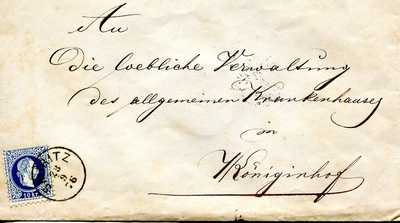 An
Die loebliche Verwaltung
des allgemeinen Krankenhauses
in
Königinhof
ITZ
28
9
76
10 kr